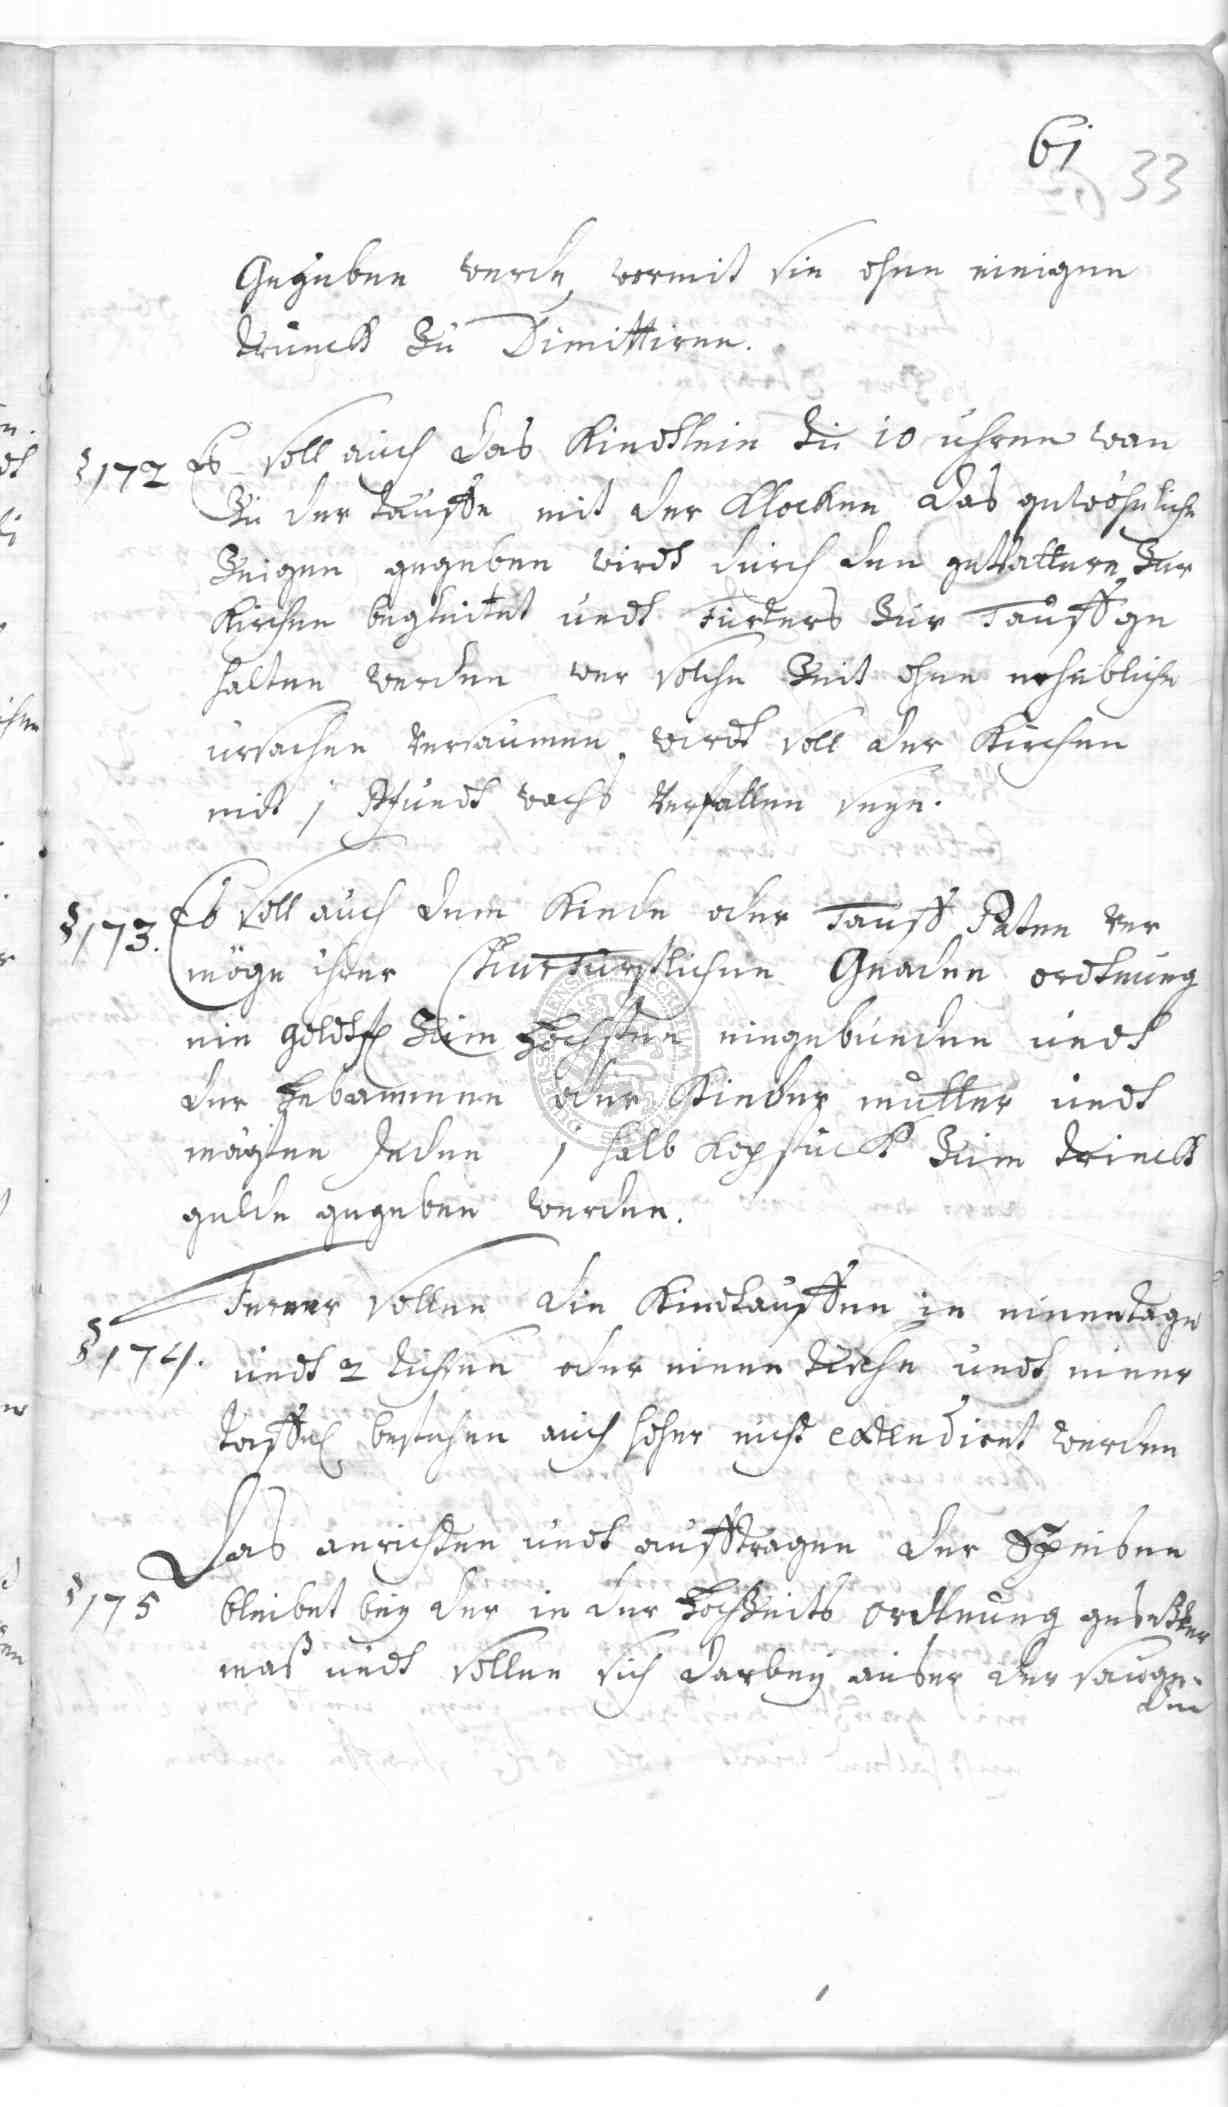 61
33
Gegeben werde, wormit sie ohne einigen
trunck zu Dimittiren.
§172 Es soll auch das Kindtlein zu 10 uhren wan
zu der Tauffe mit der Klocken das gewöhnliche
Zeigen gegeben wirdt durch den gevattern zur
Kirchen begleitet undt fürters zur Tauff ge
halten werden wer solche Zeit ohne erhebliche
ursachen versaumen wirdt soll der Kirchen
mit 1 Pfundt wachs verfallen seyn.
§173. Es soll auch dem Kinde oder Tauff Paten ver
möge ihrer Churfürstlichen Gnaden ordtnung
ein goldtfl zum Höchsten eingebunden undt
der Hebammen oder Kinder mutter undt
mägten Jeden 1 halb Kopstück zum trinck
gelde gegeben werden.
Ferner sollen die Kindtauffen in einem tage
§174. undt 2 tischen oder einen tische undt einer
taffel bestehen auch hoher nicht extendiret werden
Das anrichten undt aufftragen der Speisen
§175 bleibet bey der in der Hochzeits ordtnung gesetzter
maß undt sollen sich darbey außer der sauge-
den